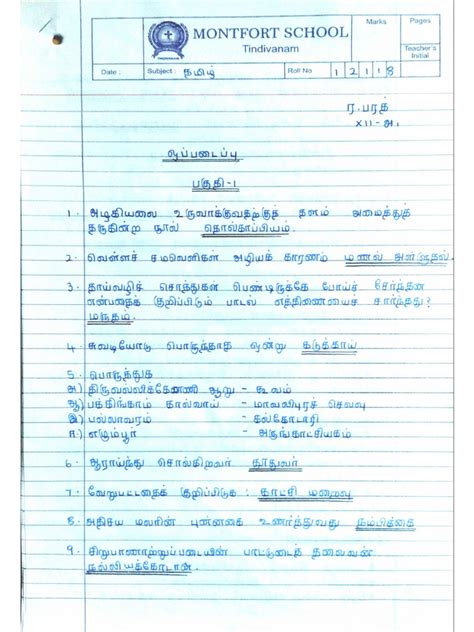 MONTFORT SCHOOL
Tindivanam
Marks
Pages
Teacher's
Initial
Date :
Subject : தமிழ்
Roll No
1 2 1 1 8
ர. பரத்
XII - அ.
ஒப்படைப்பு
பகுதி-1
1. அழகியலை உருவாக்குவதற்குத் தளம் அமைத்துத்
தருகின்ற நூல் தொல்காப்பியம்.
2. வெள்ளச் சமவெளிகள் அழியக் காரணம் மணல் அள்ளுதல்.
3. தாய்வழிச் சொத்துகள் பெண்டிருக்கே போய்ச் சேர்ந்தன
என்பதைக் குறிப்பிடும் பாடல் எத்திணையைச் சார்ந்தது?
மருதம்.
4. சுவடியோடு பொருந்தாத ஒன்று கடுக்காய்
5. பொருத்துக
அ) திருவல்லிக்கேணி ஆறு - கூவம்
ஆ) பக்கிங்காம் கால்வாய் - மாவலிபுரச் செலவு
இ) பல்லாவரம் - கல்கோடாரி
ஈ) எழும்பூர் - அருங்காட்சியகம்
6. ஆராய்ந்து சொல்கிறவர் தூதுவர்
7. வேறுபட்டதைக் குறிப்பிடுக : காட்சி மறைவு
8. அதிசய மலரின் புன்னகை உணர்த்துவது நம்பிக்கை
9. சிறுபாணாற்றுப்படையின் பாட்டுடைத் தலைவன்
நல்லியக்கோடான்.